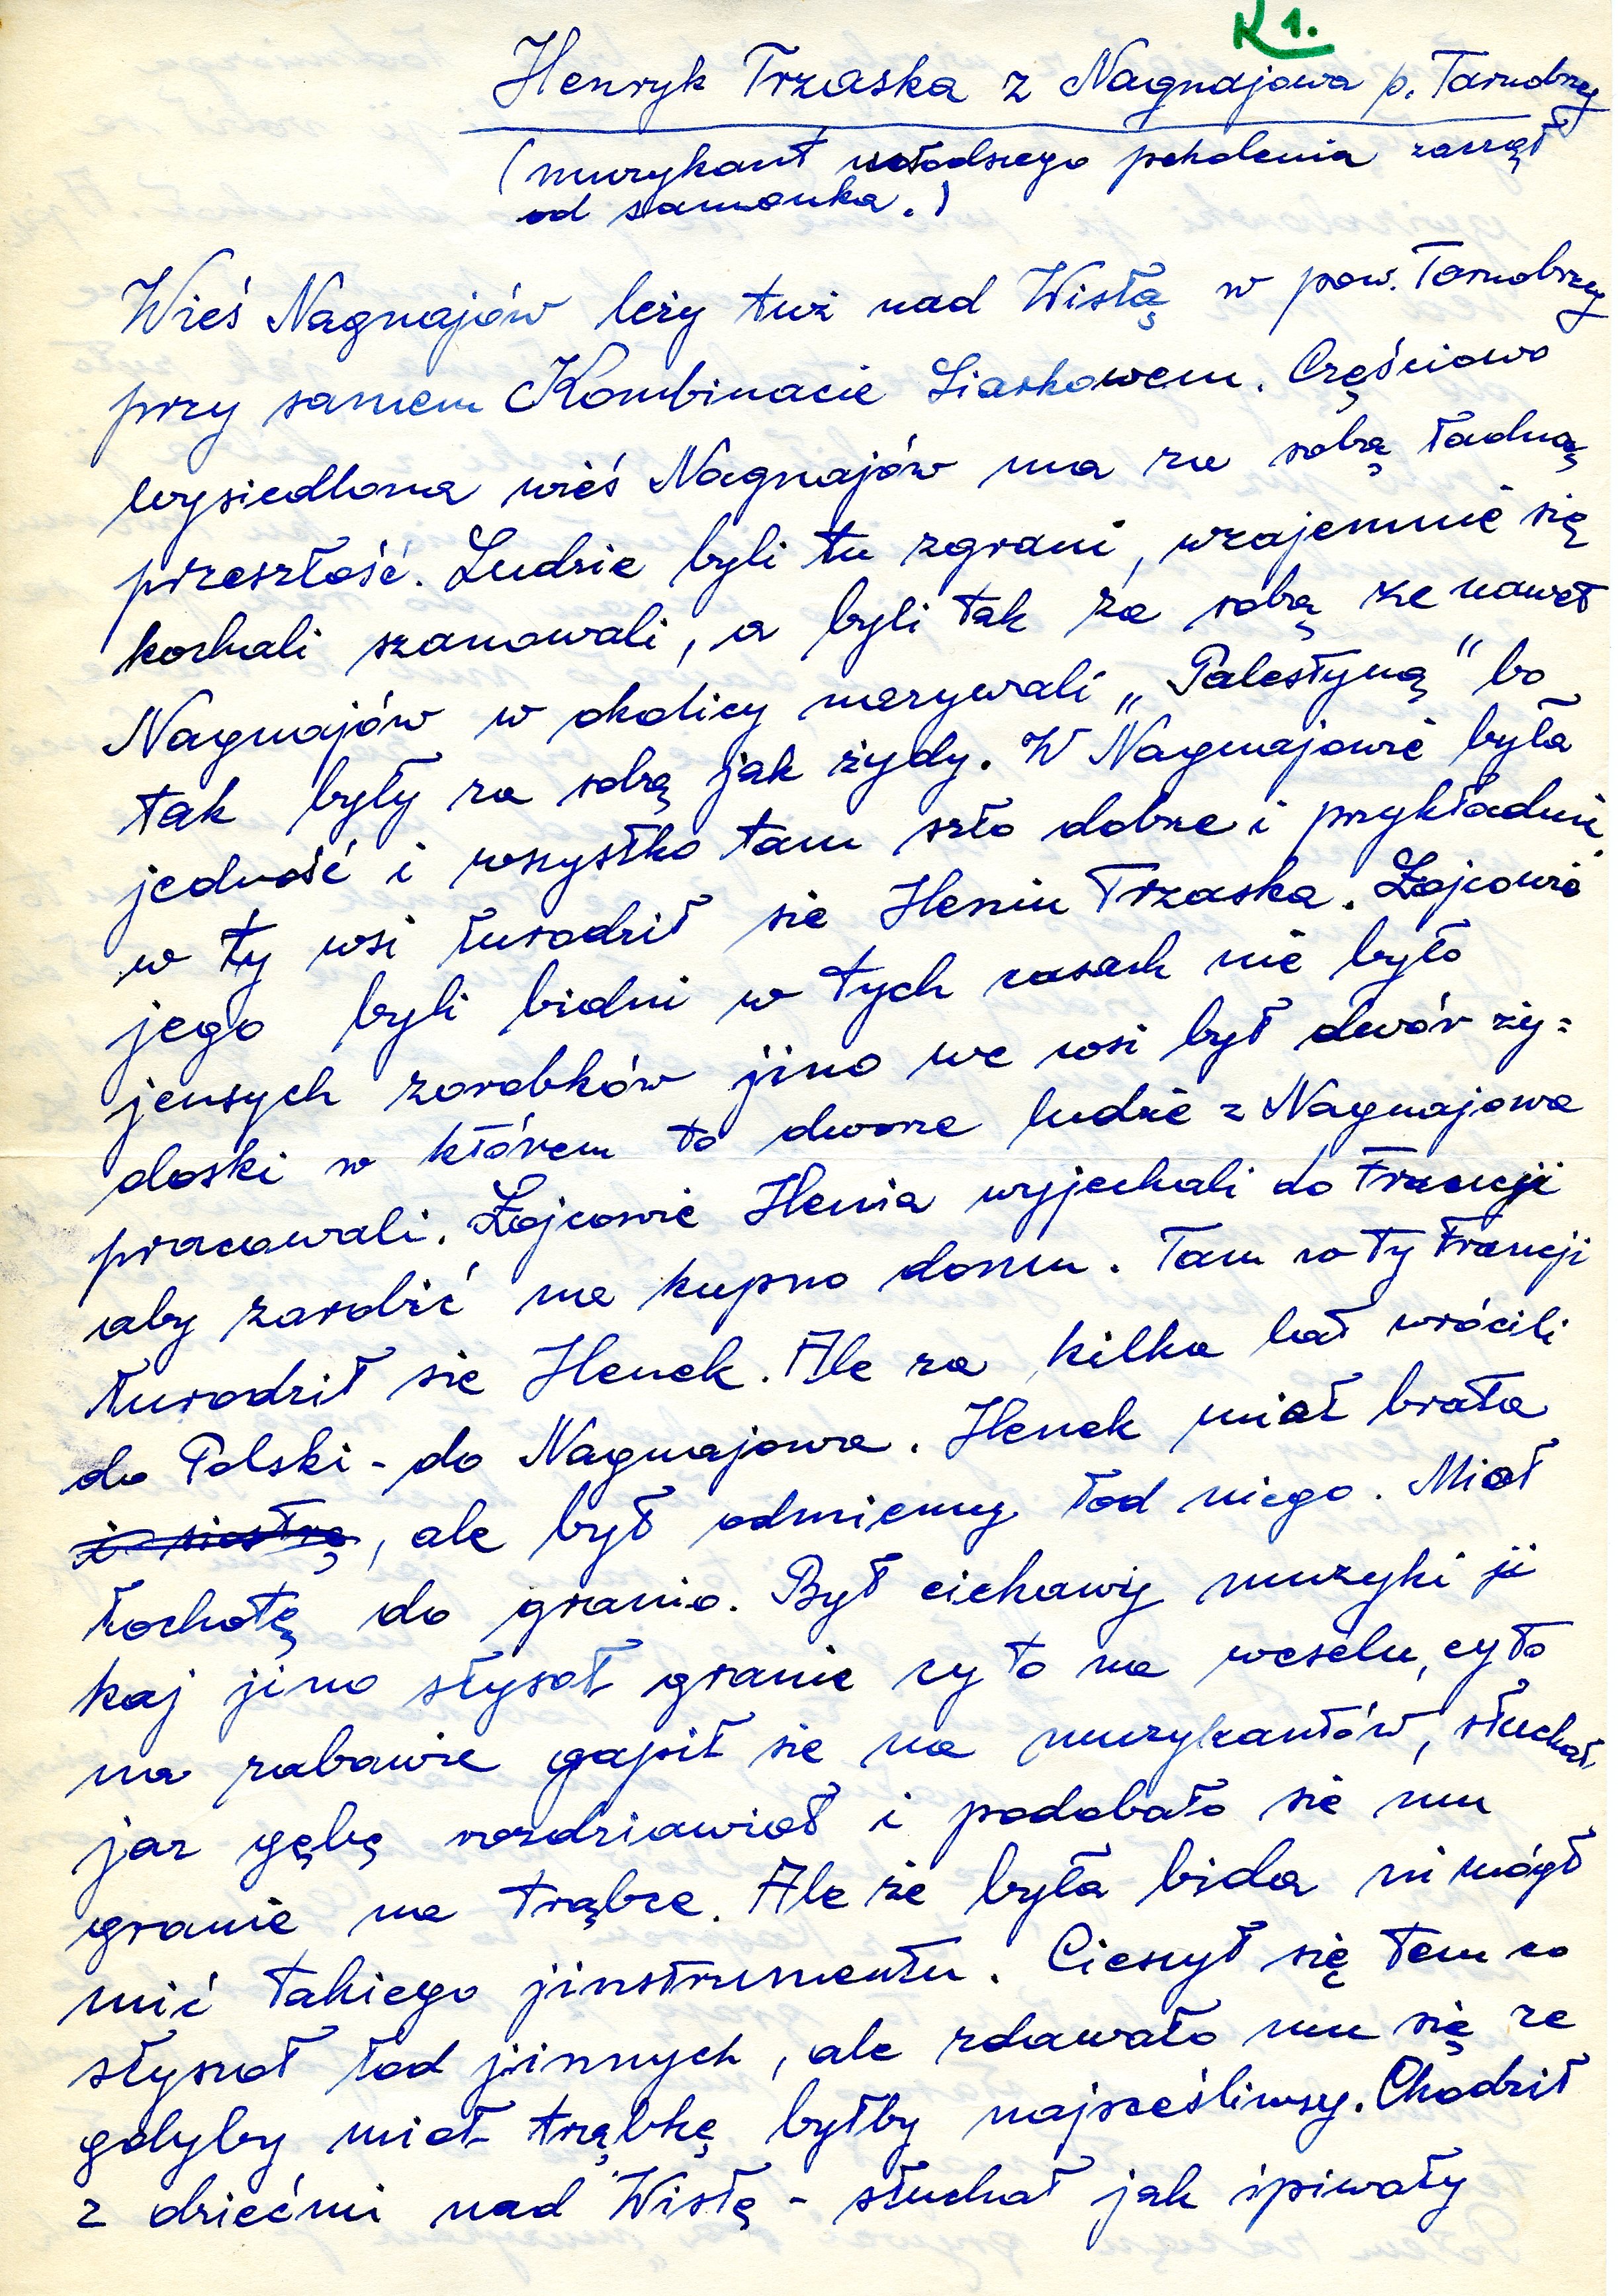 K 1.
Henryk Trzaska z Nagnajowa p. Tarnobrzeg
(muzykant młodszego pokolenia zaczął
od samouka.)
Wieś Nagnajów leży tuż nad Wisłą w pow. Tarnobrzeg
przy samem Kombinacie Siarkowem. Częściowo
wysiedlona wieś Nagnajów ma za sobą ładną
przeszłość. Ludzie byli tu zgrani, wzajemnie się
kochali szanowali, a byli tak za sobą ze nawet
Nagnajów w okolicy nazywali „Palestyną" bo
tak były za sobą jak żydy. W Nagnajowie była
jedność i wszystko tam szło dobrze i przykładnie.
w ty wsi łurodził sie Heniu Trzaska. Łojcowie
jego byli bidni w tych casach nie było
jensych zarobków jino we wsi był dwór ży=
doski w którem to dworze ludzie z Nagnajowa
pracowali. Łojcowie Henia wyjechali do Francji
aby zarobić na kupno domu. Tam w ty Francji
łurodził sie Henek. Ale za kilka lat wrócili
do Polski - do Nagnajowa. Henek miał brata
i siostrę, ale był odmienny łod niego. Mioł
łochotę do granio. Był ciekawy muzyki ji
kaj jino słysoł granie cy to na weselu, cy to
na zabawie gapił sie na muzykantów, słuchał,
jaz gębę rozdziawioł i podobało sie mu
granie na trąbce. Ale że była bida ni mógł
mić takiego jinstrumentu. Cieszył się tem co
słyszoł łod jinnych, ale zdawało mu się ze
gdyby mioł trąbkę byłby najsceśliwszy. Chodził
z dziećmi nad Wisłę - słuchał jak śpiwały